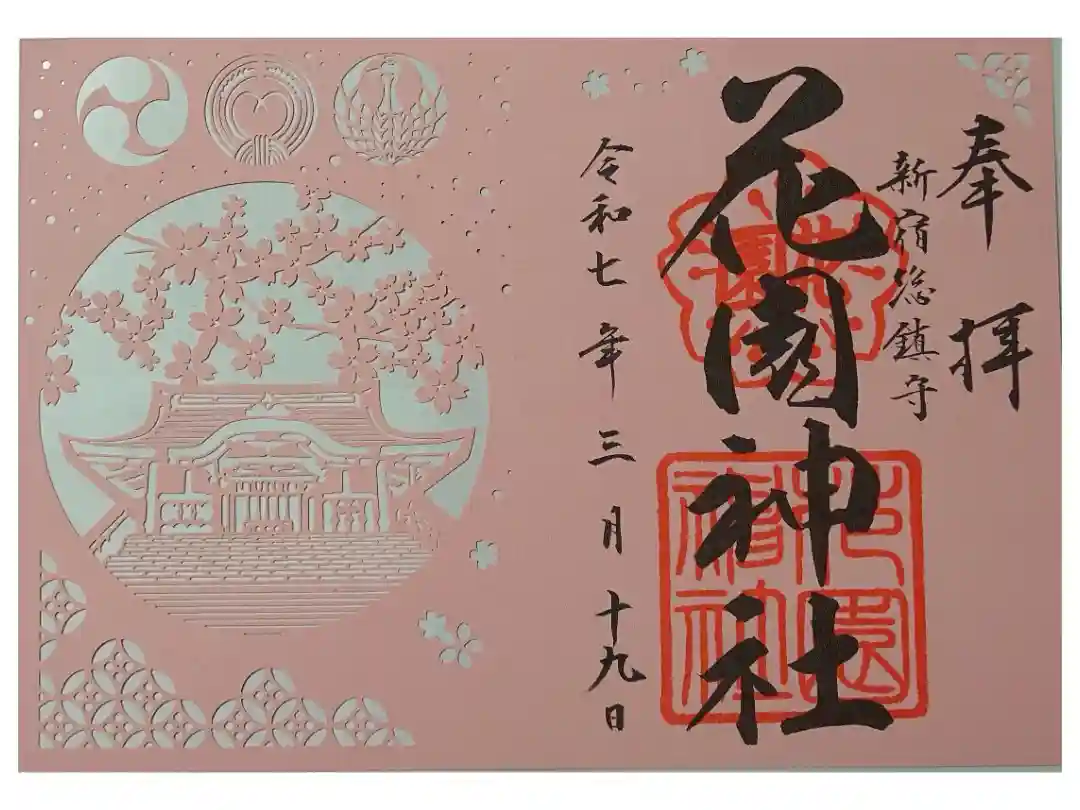 奉拝
新宿総鎮守
花園神社
令和七年三月十九日
花園神社